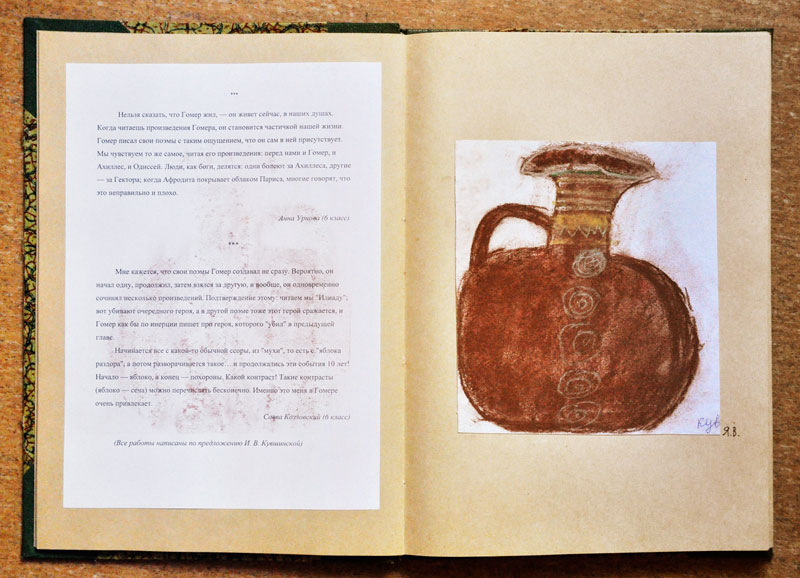 ***
Нельзя сказать, что Гомер жил, — он живет сейчас, в наших душах.
Когда читаешь произведения Гомера, он становится частичкой нашей жизни
Гомер писал свои поэмы с таким ощущением, что он сам в ней присутствует.
Мы чувствуем то же самое, читая его произведения: перед нами и Гомер, и
Ахиллес, и Одиссей. Люди, как боги, делятся: одни болеют за Ахиллеса, другие
— за Гектора; когда Афродита покрывает облаком Париса, многие говорят, что
это неправильно и плохо.
Анна Урнова (6 класс)
***
Мне кажется, что свои поэмы Гомер создавал не сразу. Вероятно, он
начал одну, продолжил, затем взялся за другую, и вообще, он одновременно
сочинял несколько произведений. Подтверждение этому: читаем мы "Илиаду",
вот убивают очередного героя, а в другой поэме тоже этот герой сражается, и
Гомер как бы по инерции пишет про героя, которого "убил" в предыдущей
главе.
Начинается все с какой-то обычной ссоры, из "мухи", то есть с "яблока
раздора", а потом разворачивается такое… и продолжались эти события 10 лет!
Начало — яблоко, а конец — похороны. Какой контраст! Такие контрасты
(яблоко — сена) можно перечислять бесконечно. Именно это меня в Гомере
очень привлекает.
Савва Козловский (6 класс)
(Все работы написаны по предложению И. В. Кувшинской)
кув
Я.В.